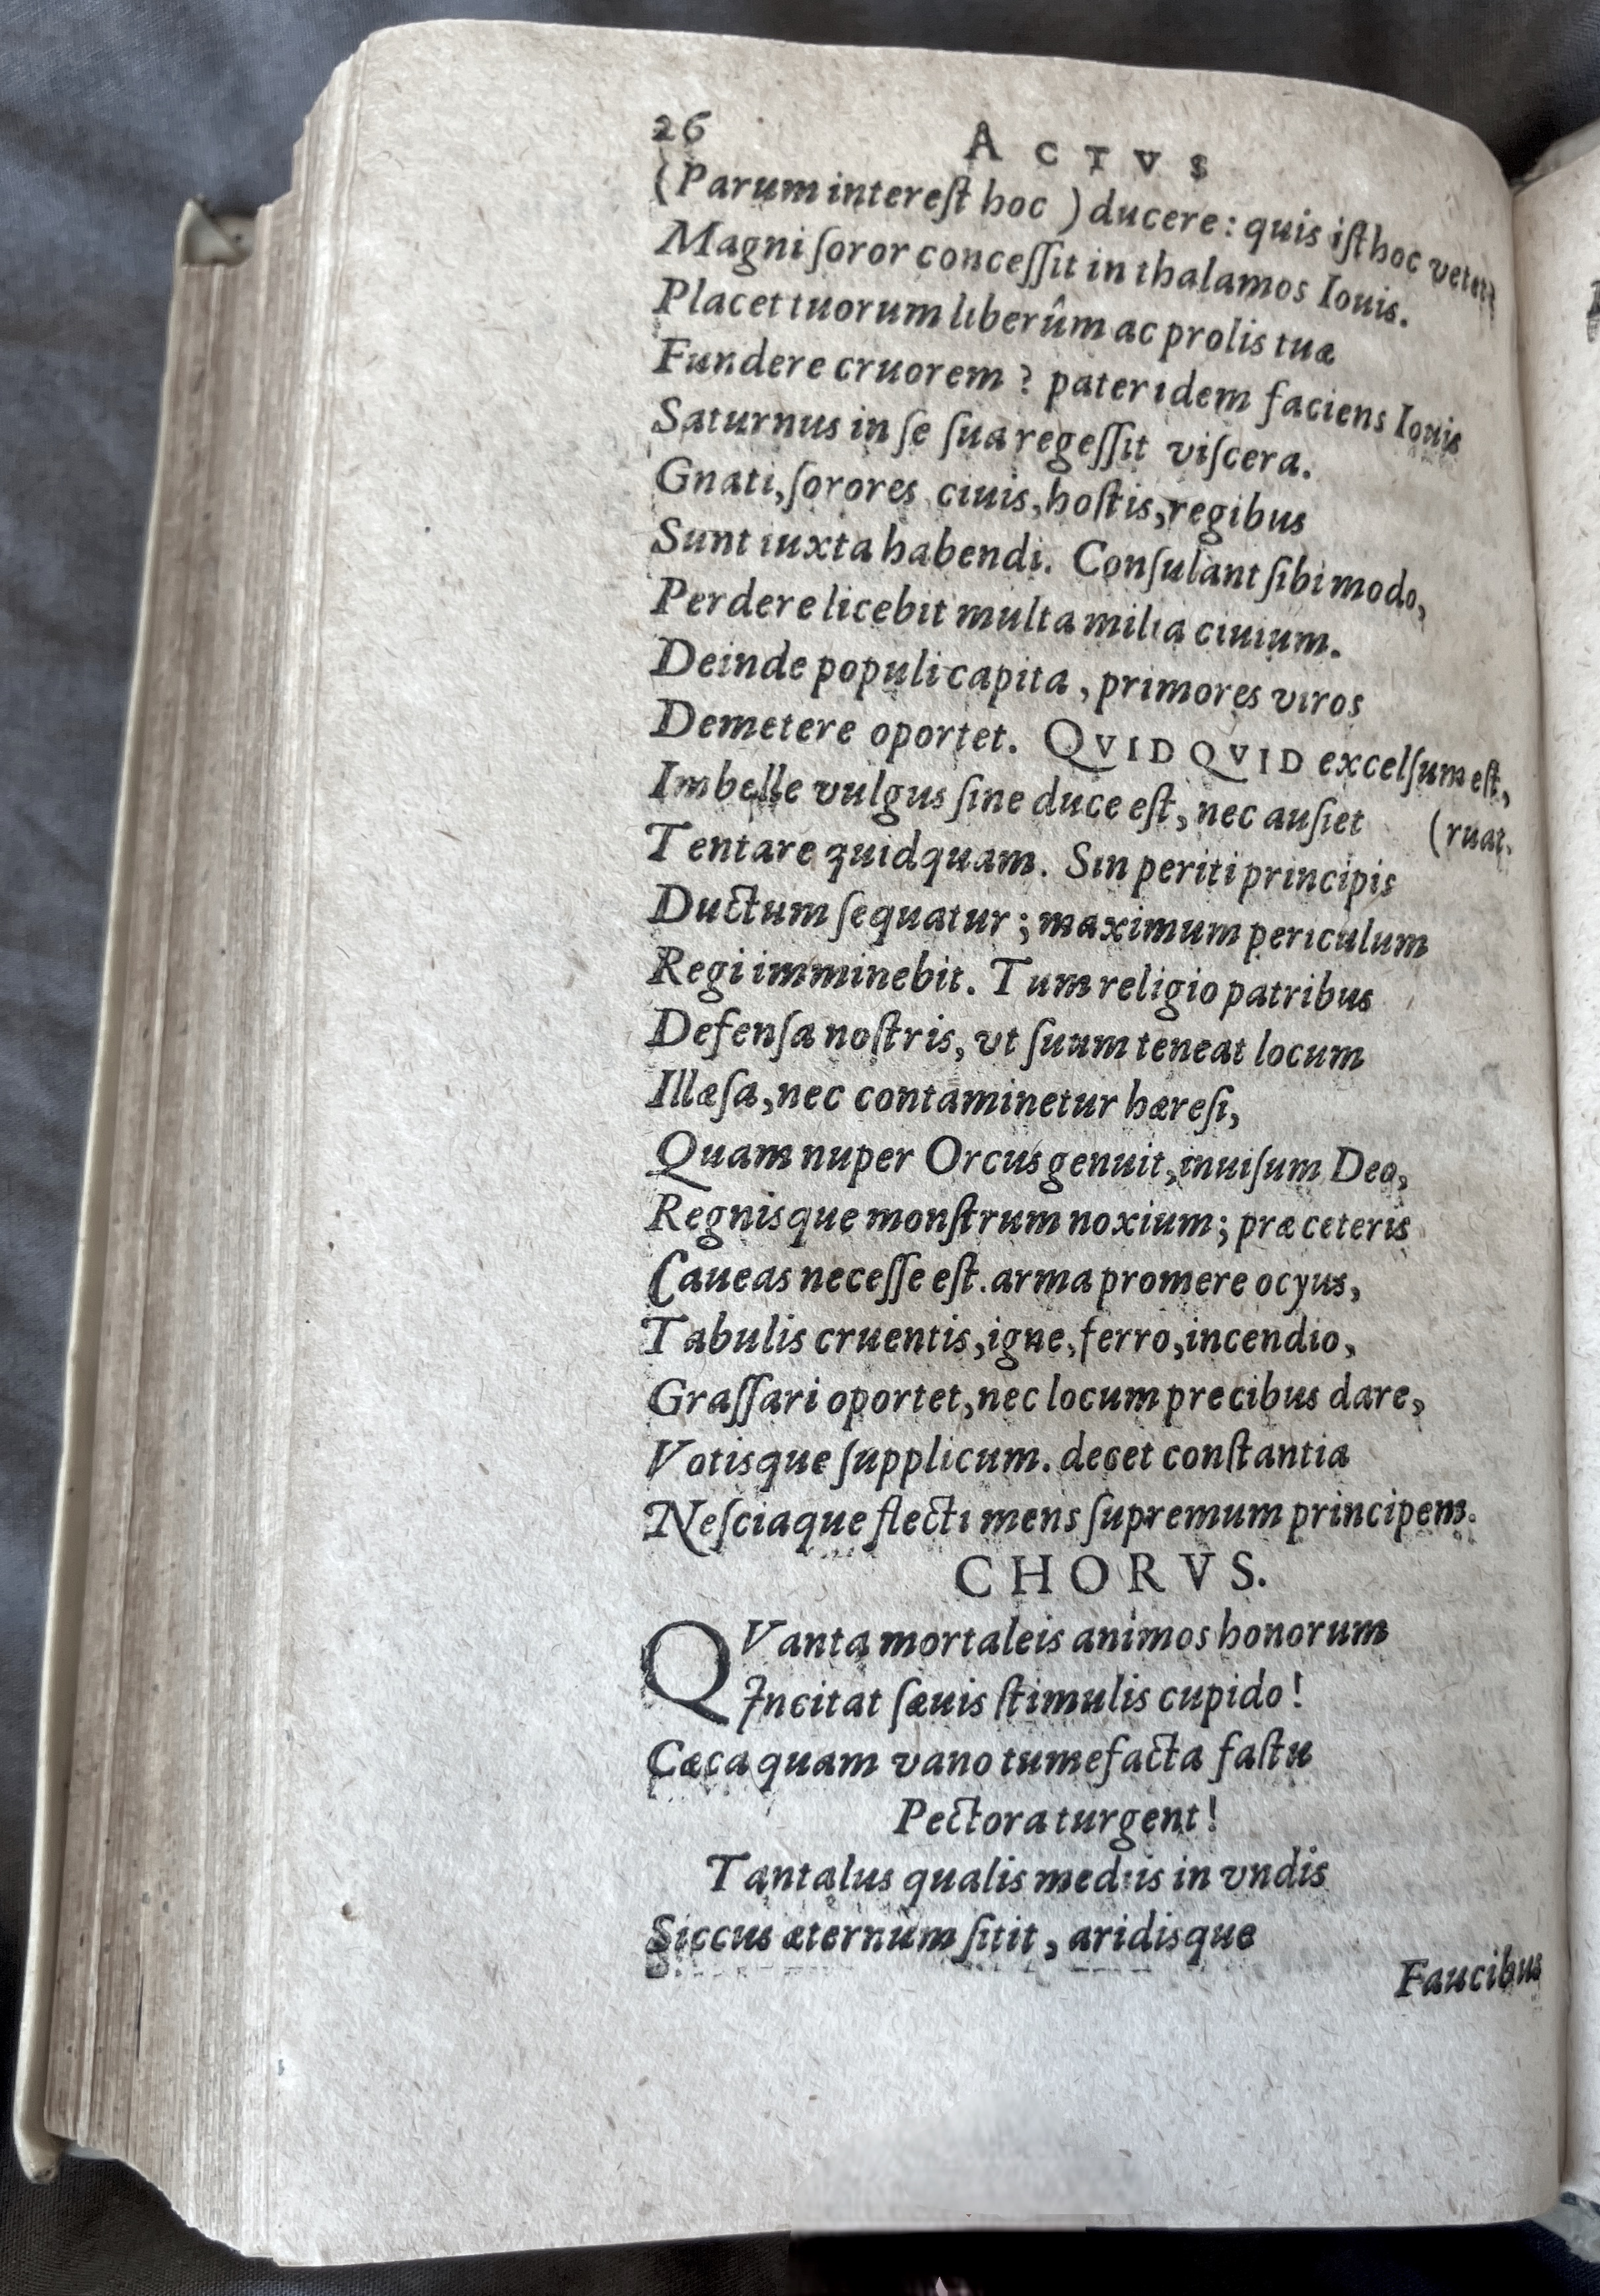 26 ACTVS
(Parum intereſt hoc ) ducere : quis iſthoc vetet?
Magni ſoror conceſſit in thalamos Iouis.
Placet tuorum liberûm ac prolis tuæ
Fundere cruorem ? pater idem faciens Iouis
Saturnus in ſe ſua regeſſit viſcera.
Gnati, ſorores ciuis, hoſtis, regibus
Sunt iuxta habendi. Conſulant ſibi modo,
Perdere licebit multa milia ciuium.
Deinde populi capita , primores viros
Demetere oportet. QVIDQVID excelſum eſt,
Imbelle vulgus ſine duce eſt, nec auſiet (ruat.
Tentare quidquam. Sin periti principis
Ductum ſequatur ; maximum periculum
Regi imminebit. Tum religio patribus
Defenſa noſtris, vt ſuum teneat locum
Illæſa, nec contaminetur hæreſi,
Quam nuper Orcus genuit, inuiſum Deo,
Regnisque monſtrum noxium ; præ ceteris
Caueas neceſſe eſt. arma promere ocyus,
Tabulis cruentis, igne, ferro, incendio,
Graſſari oportet, nec locum precibus dare,
Votisque ſupplicum. decet conſtantia
Neſciaque flecti mens ſupremum principem.
CHORVS.
QVanta mortaleis animos honorum
Incitat ſæuis ſtimulis cupido !
Cæca quam vano tumefacta faſtu
Pectora turgent !
Tantalus qualis mediis in vndis
Siccus æternum ſitit , aridisque
Faucibus